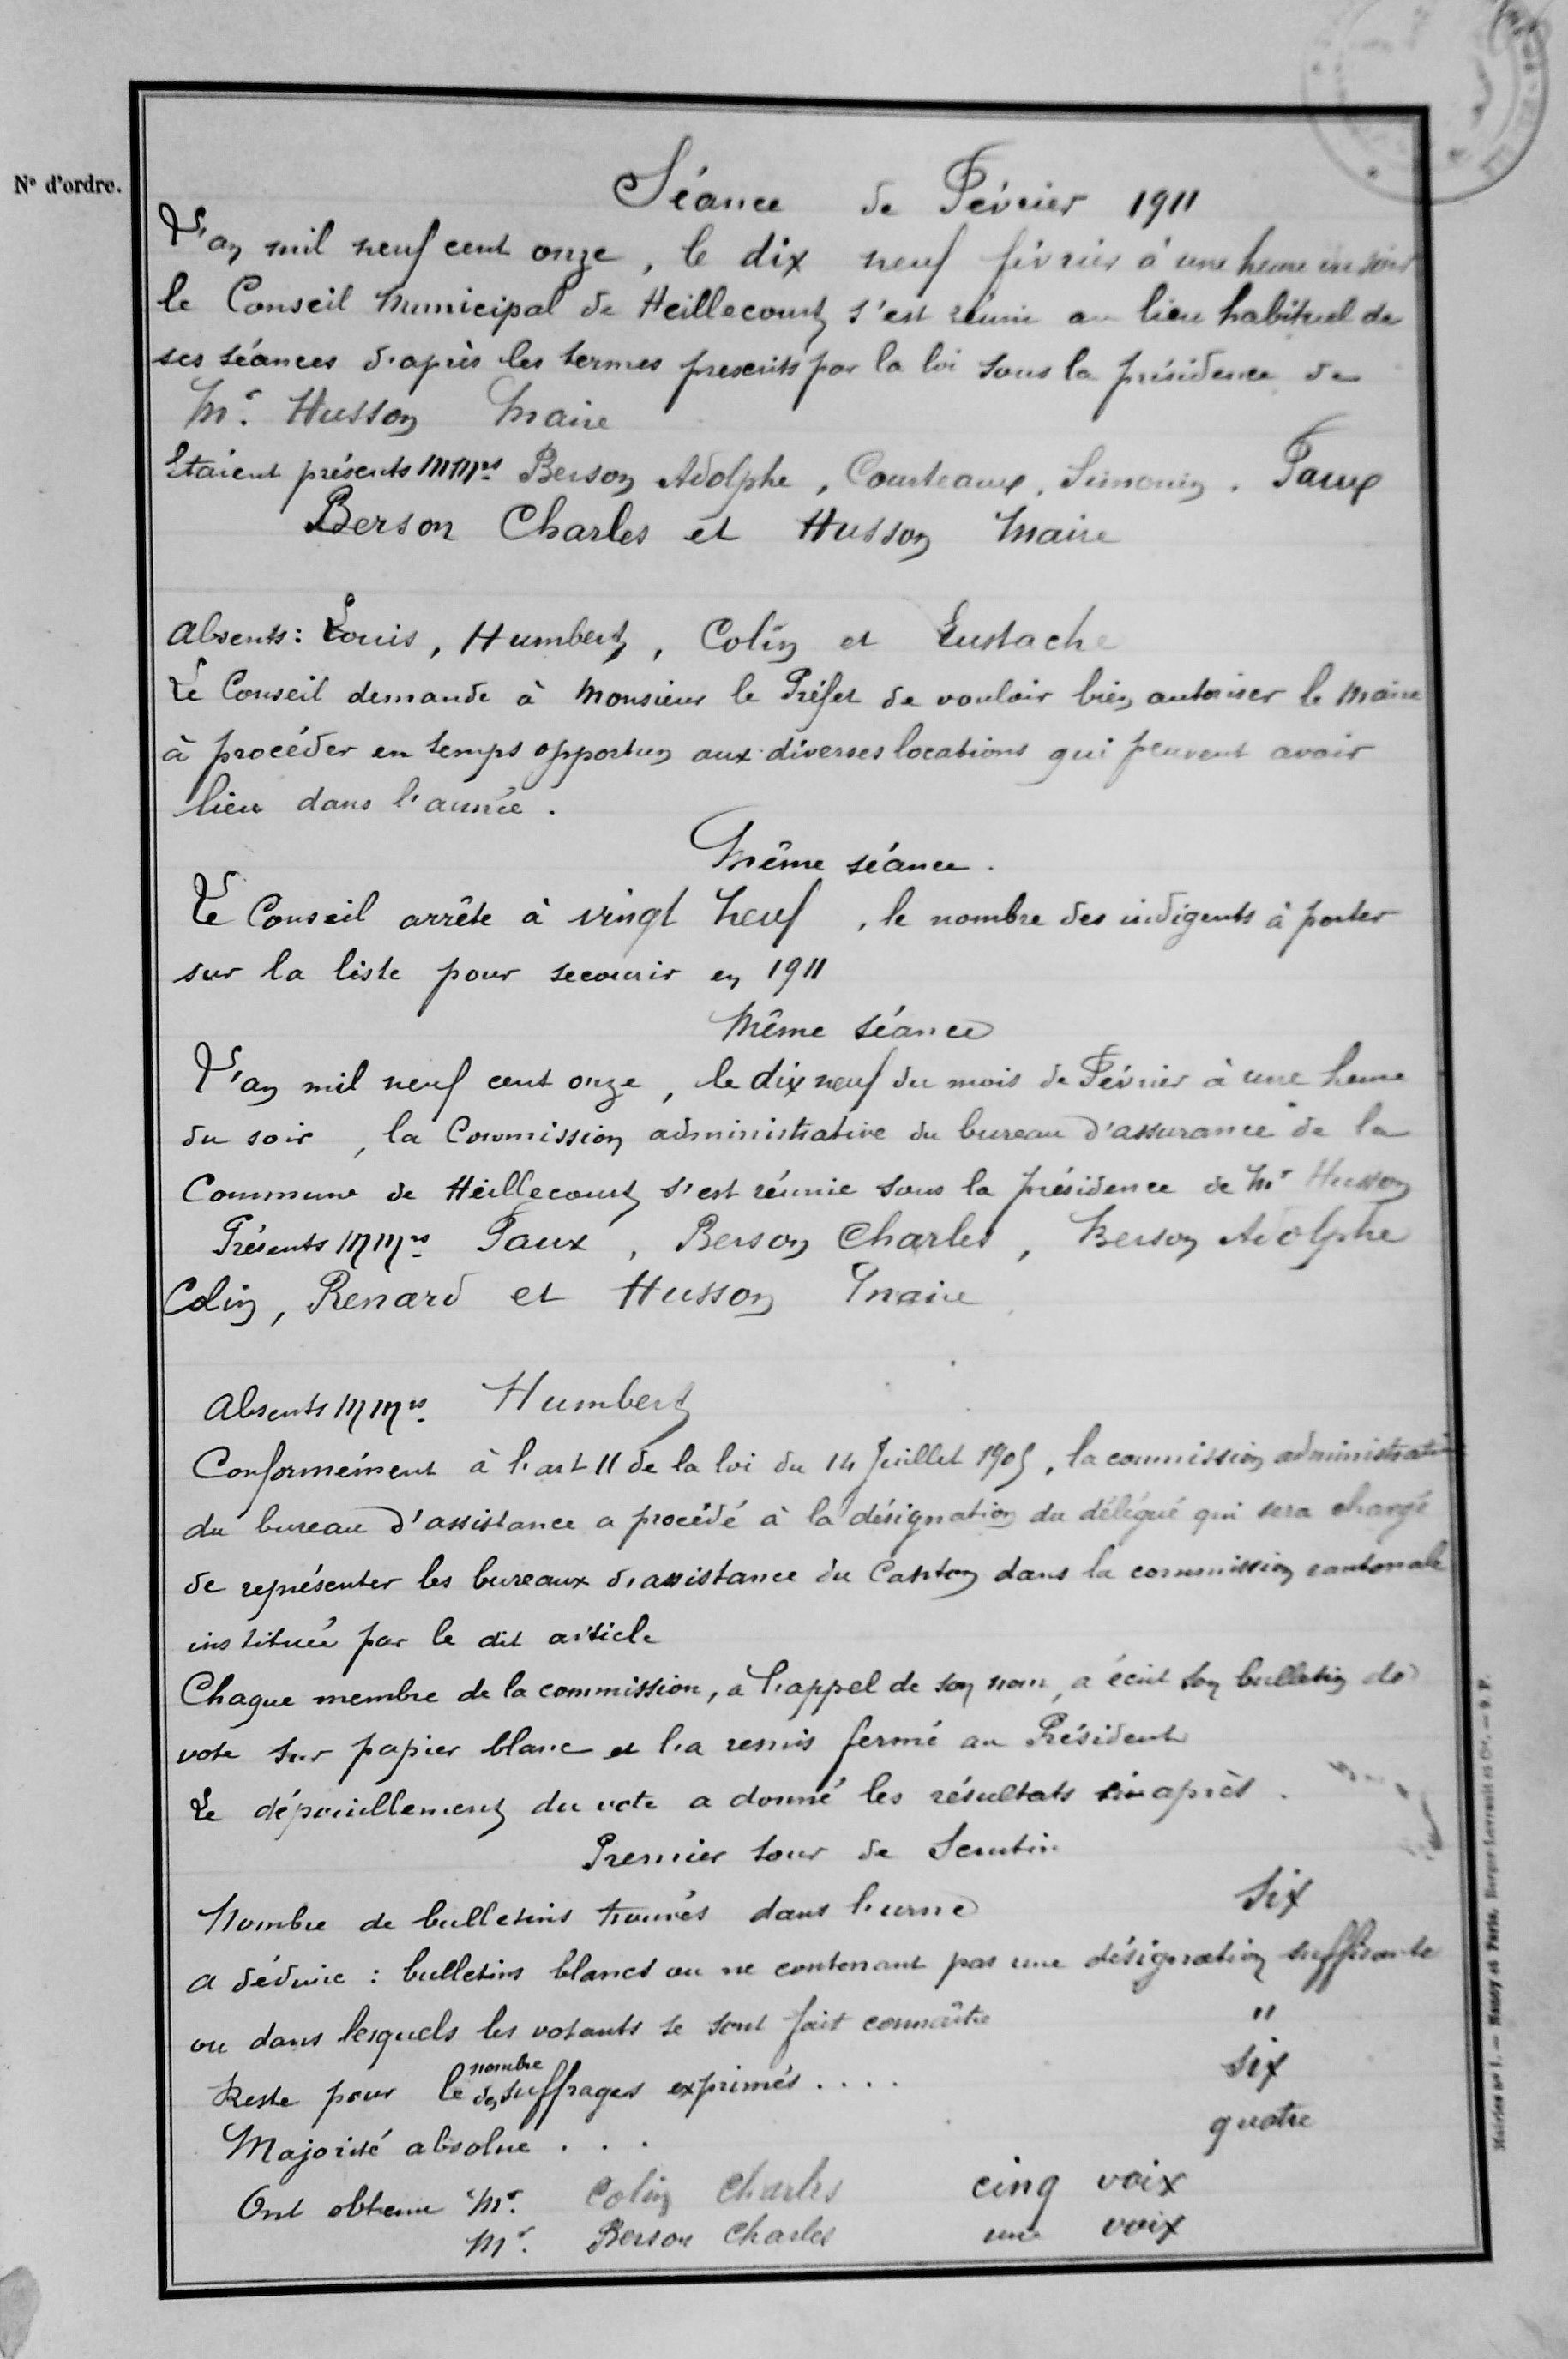 N° d'ordre.
Séance de Février 1911
L'an mil neuf cent onze, le dix neuf février à une heure du soir
le Conseil Municipal de Heillecourt s'est réuni au lieu habituel de
ses séances d'après les termes prescrits par la loi sous la présidence de
Mr. Husson Maire
Etaient présents MMrs Berson Adolphe, Courteaux, Simonin, Paux
Berson Charles et Husson Maire
Absents: Louis, Humbert, Colin et Eustache
Le Conseil demande à Monsieur le Préfet de vouloir bien autoriser le Maire
à procéder en temps opportun aux diverses locations qui peuvent avoir
lieu dans l'année.
Même séance.
Le Conseil arrête à vingt neuf, le nombre des indigents à porter
sur la liste pour secourir en 1911
Même séance
L'an mil neuf cent onze, le dix neuf du mois de Février à une heure
du soir, la Commission administrative du bureau d'assurance de la
Commune de Heillecourt s'est réunie sous la présidence de Mr Husson
Présents MMrs Paux, Berson Charles, Berson Adolphe
Colin, Renard et Husson Maire
Absents MMrs. Humbert
Conformément à l'art 11 de la loi du 14 Juillet 1905, la commission administrative
du bureau d'assistance a procédé à la désignation du délégué qui sera chargé
de représenter les bureaux d'assistance du Canton dans la commission cantonale
instituée par le dit article
Chaque membre de la commission, à l'appel de son nom, a écrit son bulletin de
vote sur papier blanc et l'a remis fermé au Président
Le dépouillement du vote a donné les résultats ci après.
Premier tour de Scrutin
Nombre de bulletins trouvés dans l'urne six
A déduire : bulletins blancs ou ne contenant pas une désignation suffisante
ou dans lesquels les votants se sont fait connaître "
Reste pour le nombre des suffrages exprimés.... six
Majorité absolue... quatre
Ont obtenu Mr. Colin Charles cinq voix
Mr. Berson Charles une voix
Mairies n° 1. — Nancy et Paris, Berger-Levrault et Cie. — 9 P.